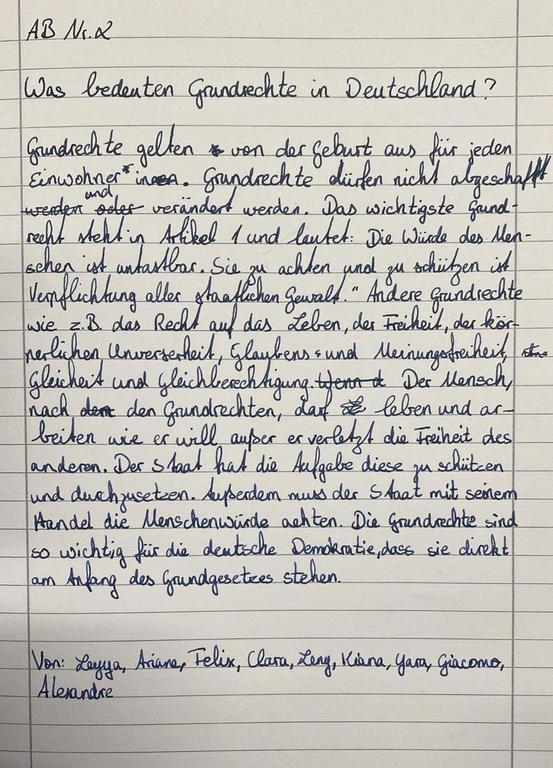 AB Nr. 2
Was bedeuten Grundrechte in Deutschland?
Grundrechte gelten von der Geburt aus für jeden
Einwohner*in. Grundrechte dürfen nicht abgeschafft
und
werden oder verändert werden. Das wichtigste Grund-
recht steht in Artikel 1 und lautet: Die Würde des Men-
schen ist antastbar. Sie zu achten und zu schützen ist
Verpflichtung aller staatlichen Gewalt." Andere Grundrechte
wie z.B. das Recht auf das Leben, der Freiheit, der kör-
perlichen Unverserheit, Glaubens- und Meinungsfreiheit,
Gleicheit und Gleichberechtigung. Wenn d Der Mensch,
nach dem den Grundrechten, darf leben und ar-
beiten wie er will außer er verletzt die Freiheit des
anderen. Der Staat hat die Aufgabe diese zu schützen
und durchzusetzen. Außerdem muss der Staat mit seinem
Handel die Menschenwürde achten. Die Grundrechte sind
so wichtig für die deutsche Demokratie, dass sie direkt
am Anfang des Grundgesetzes stehen.
Von: Leyya, Ariane, Felix, Clara, Leny, Kiana, Yara, Giacomo,
Alexandre